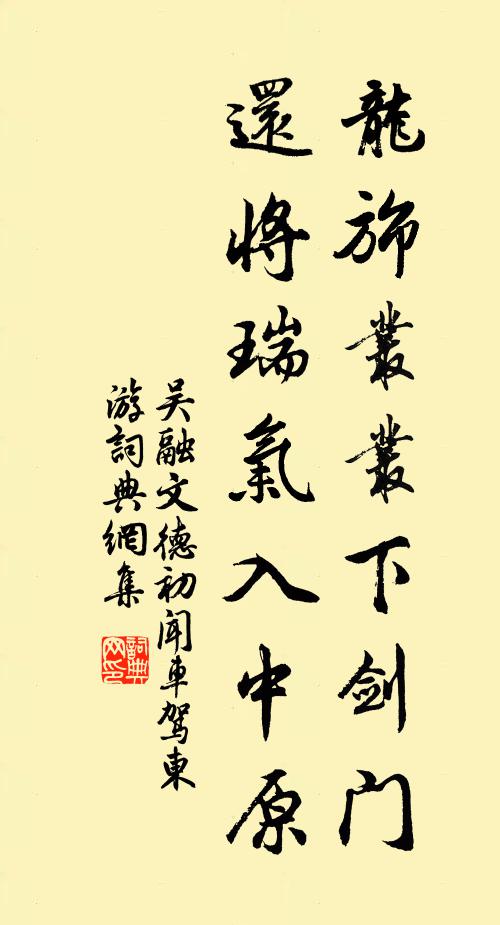 龍旆叢叢下劍门
還將瑞氣入中原
吴融文德初聞車駕東
游詞典網集
詞典網印